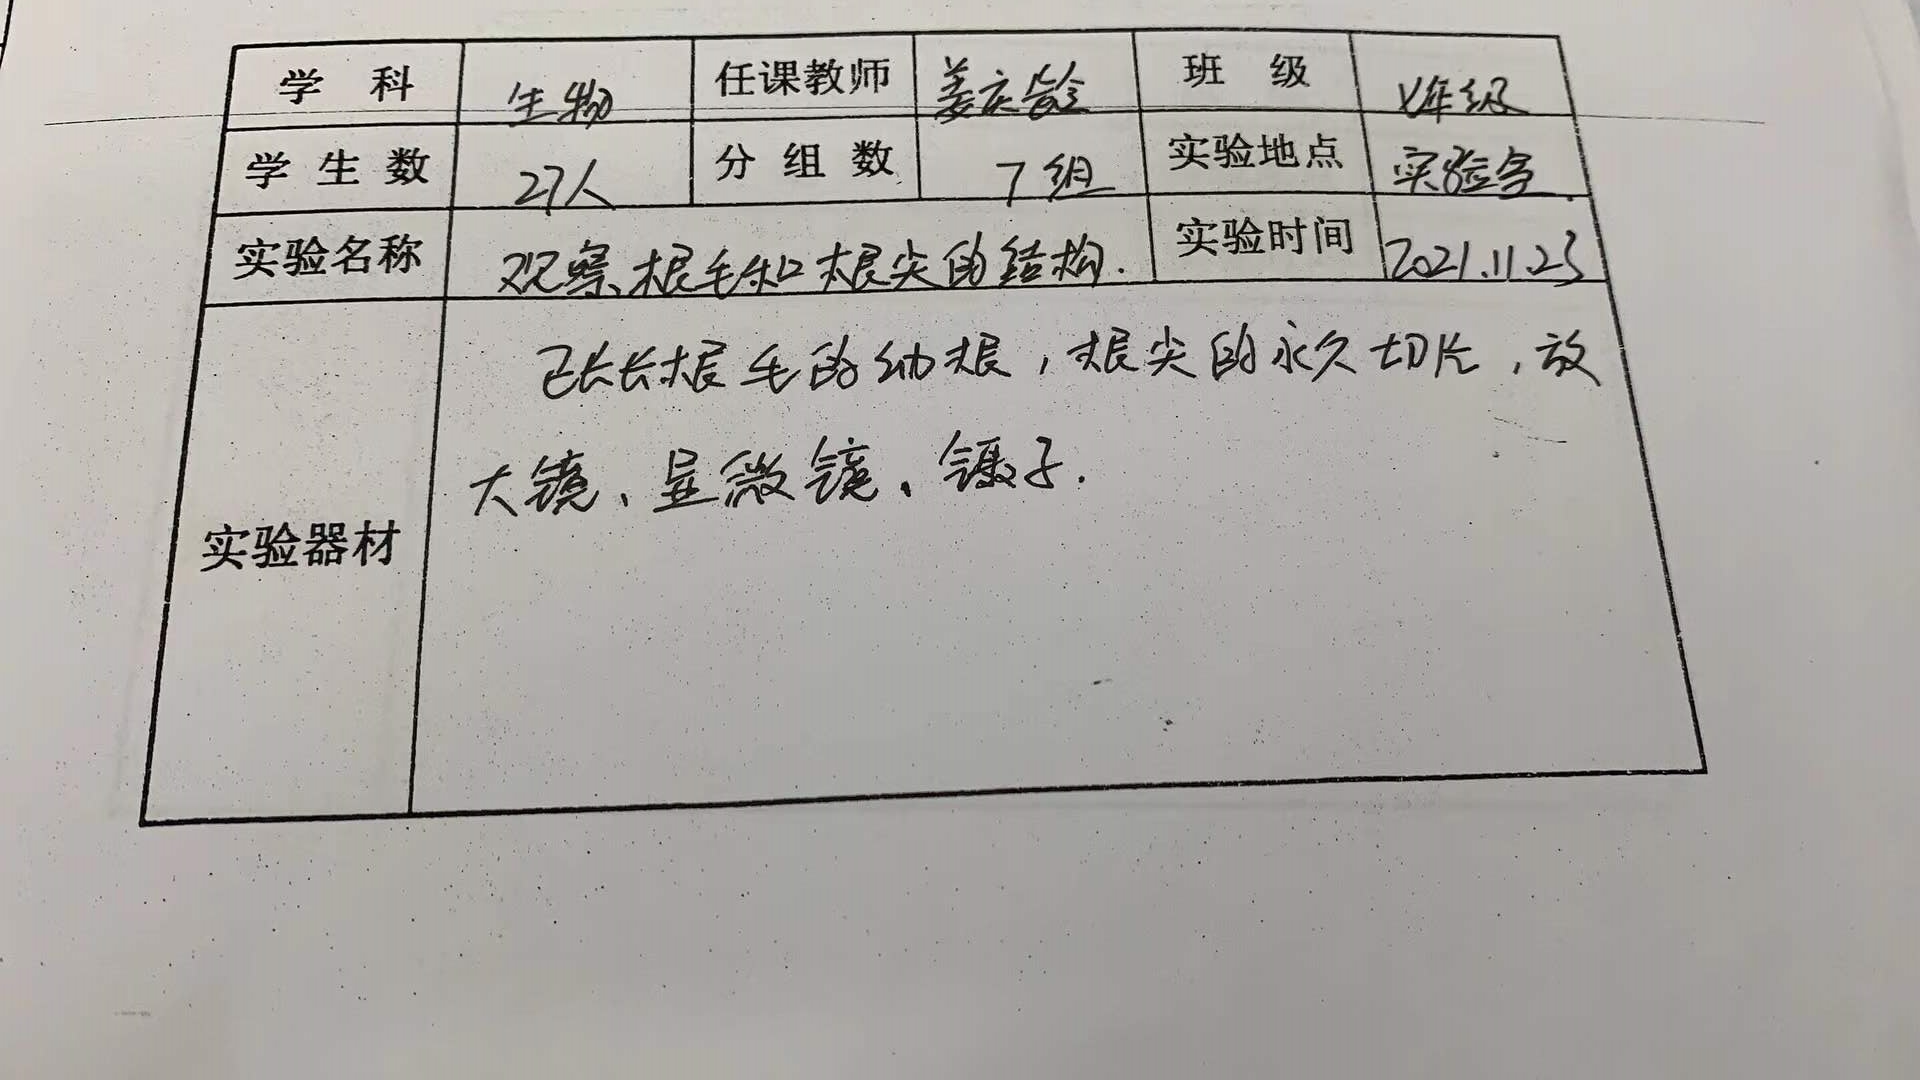 学 科 生物 任课教师 姜庆龄 班 级 七年级
学 生 数 27人 分 组 数 7组 实验地点 实验室
实验名称 观察根毛和根尖的结构. 实验时间 2021.11.23
已长长根毛的幼根，根尖的永久切片，放
大镜、显微镜、镊子.
实验器材